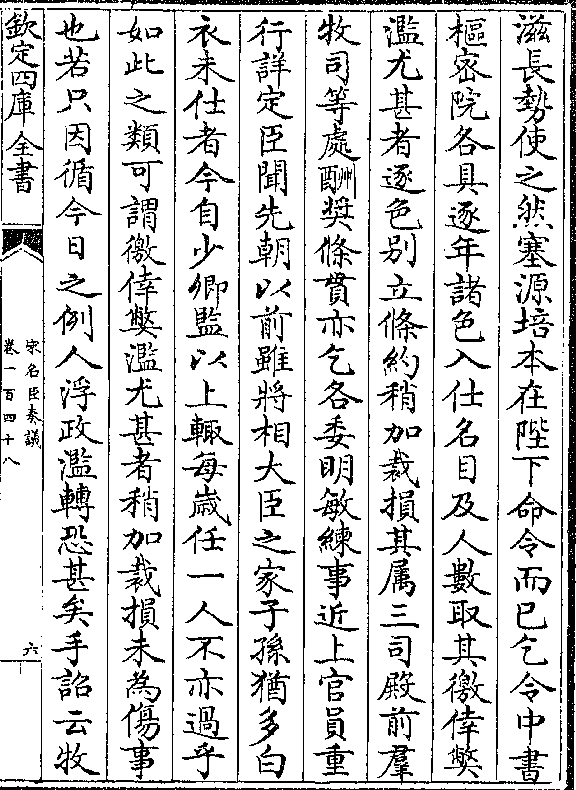 滋長勢使之然塞源培本在陛下命令而已乞令中書
樞密院各具逐年諸色入仕名目及人數取其徼倖弊
濫尤甚者逐色別立條約稍加裁損其属三司殿前羣
牧司等處酬奬條貫亦乞各委明敏練事近上官員重
行詳定臣聞先朝以前雖將相大臣之家子孫猶多白
衣未仕者今自少卿監以上輙每歲任一人不亦過乎
如此之類可謂徼倖弊濫尤甚者稍加裁損未為傷事
也若只因循今日之例人浮政濫轉恐甚矣手詔云牧
欽定四庫全書
宋名臣奏議
卷一百四十八
六